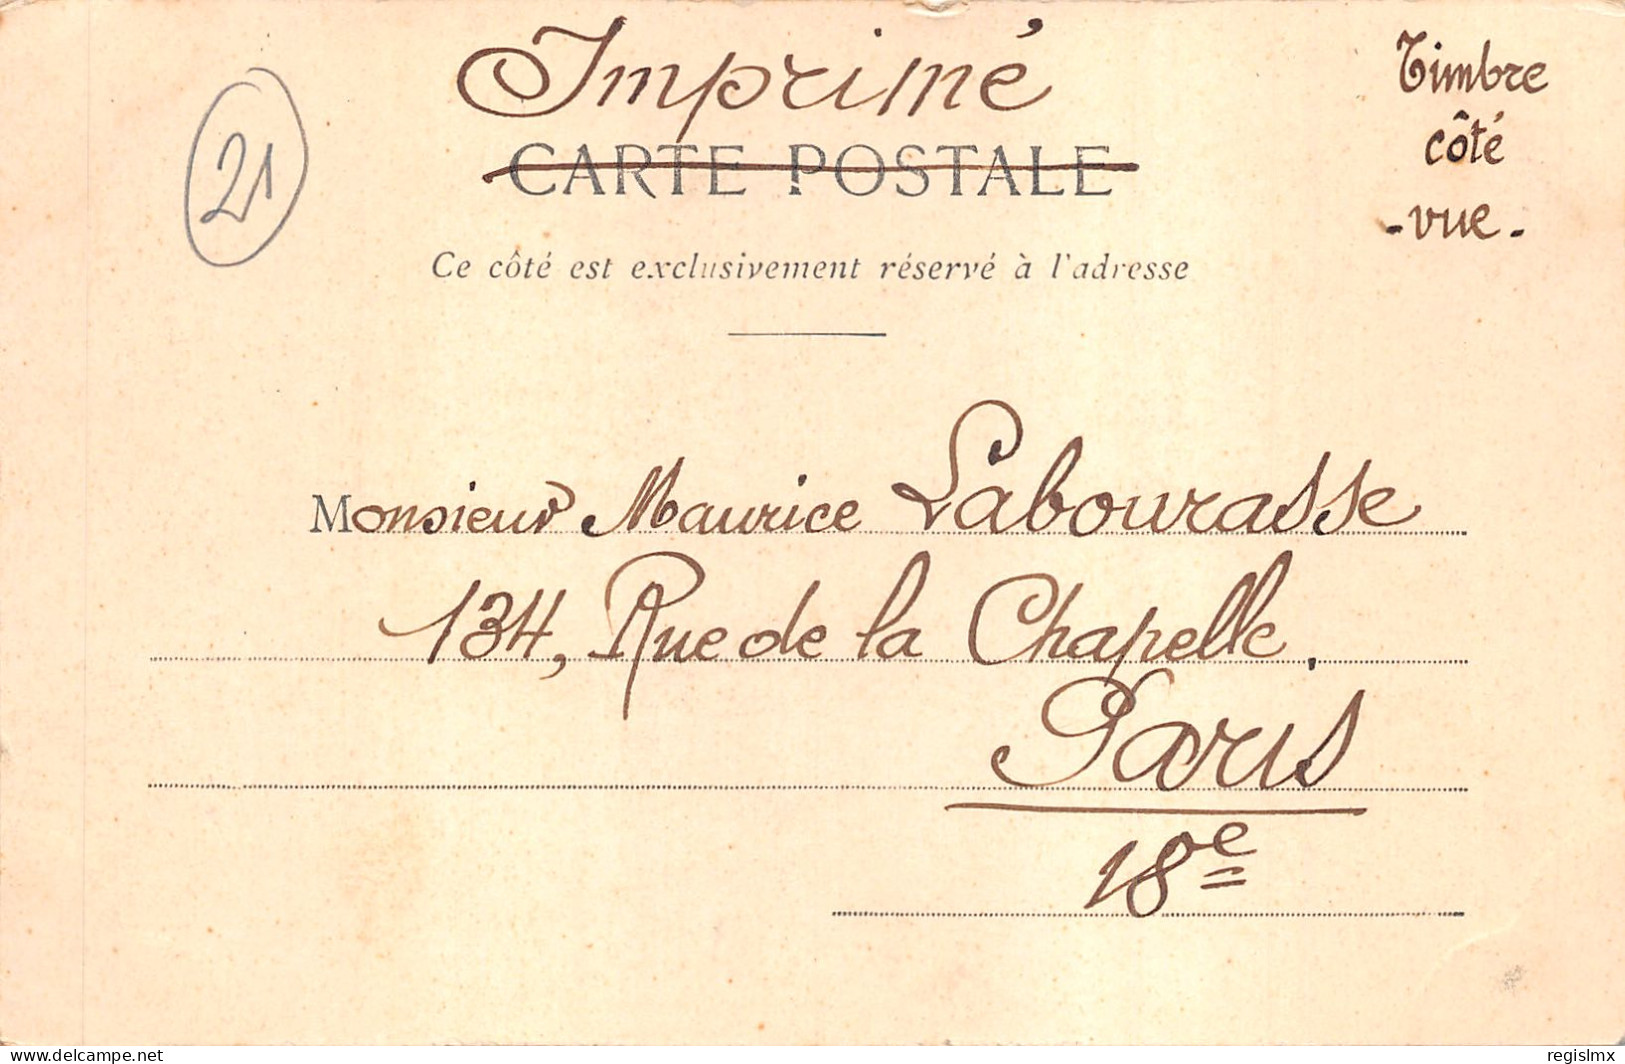 Imprimé
Timbre
côté
-vue-
21
CARTE POSTALE
Ce côté est exclusivement réservé à l'adresse
Monsieur Maurice Labourasse
134, Rue de la Chapelle.
Paris
18e
delcampe.net
regislmx